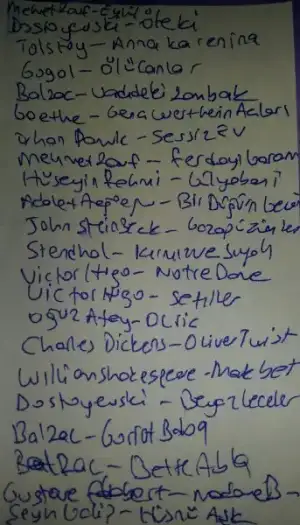 Mehmet Rauf - Eylül
Dostoyevski - Öteki
Tolstoy - Anna Karenina
Gogol - Ölü Canlar
Balzac - Vadideki Zambak
Goethe - Genç Werther'in Acıları
Orhan Pamuk - Sessiz Ev
Mehmet Rauf - Ferdayı Garam
Hüseyin Rahmi - Gulyabani
Adalet Ağaoğlu - Bir Düğün Gecesi
John Steinbeck - Gazap Üzümleri
Stendhal - Kırmızı ve Siyah
Victor Hugo - Notre Dame
Victor Hugo - Sefiller
Oğuz Atay - Olric
Charles Dickens - Oliver Twist
William Shakespeare - Makbet
Dostoyevski - Beyaz Geceler
Balzac - Goriot Baba
Balzac - Bette Abla
Gustave Flobert - Madame B
Şeyh Galip - Hüsnü Aşk